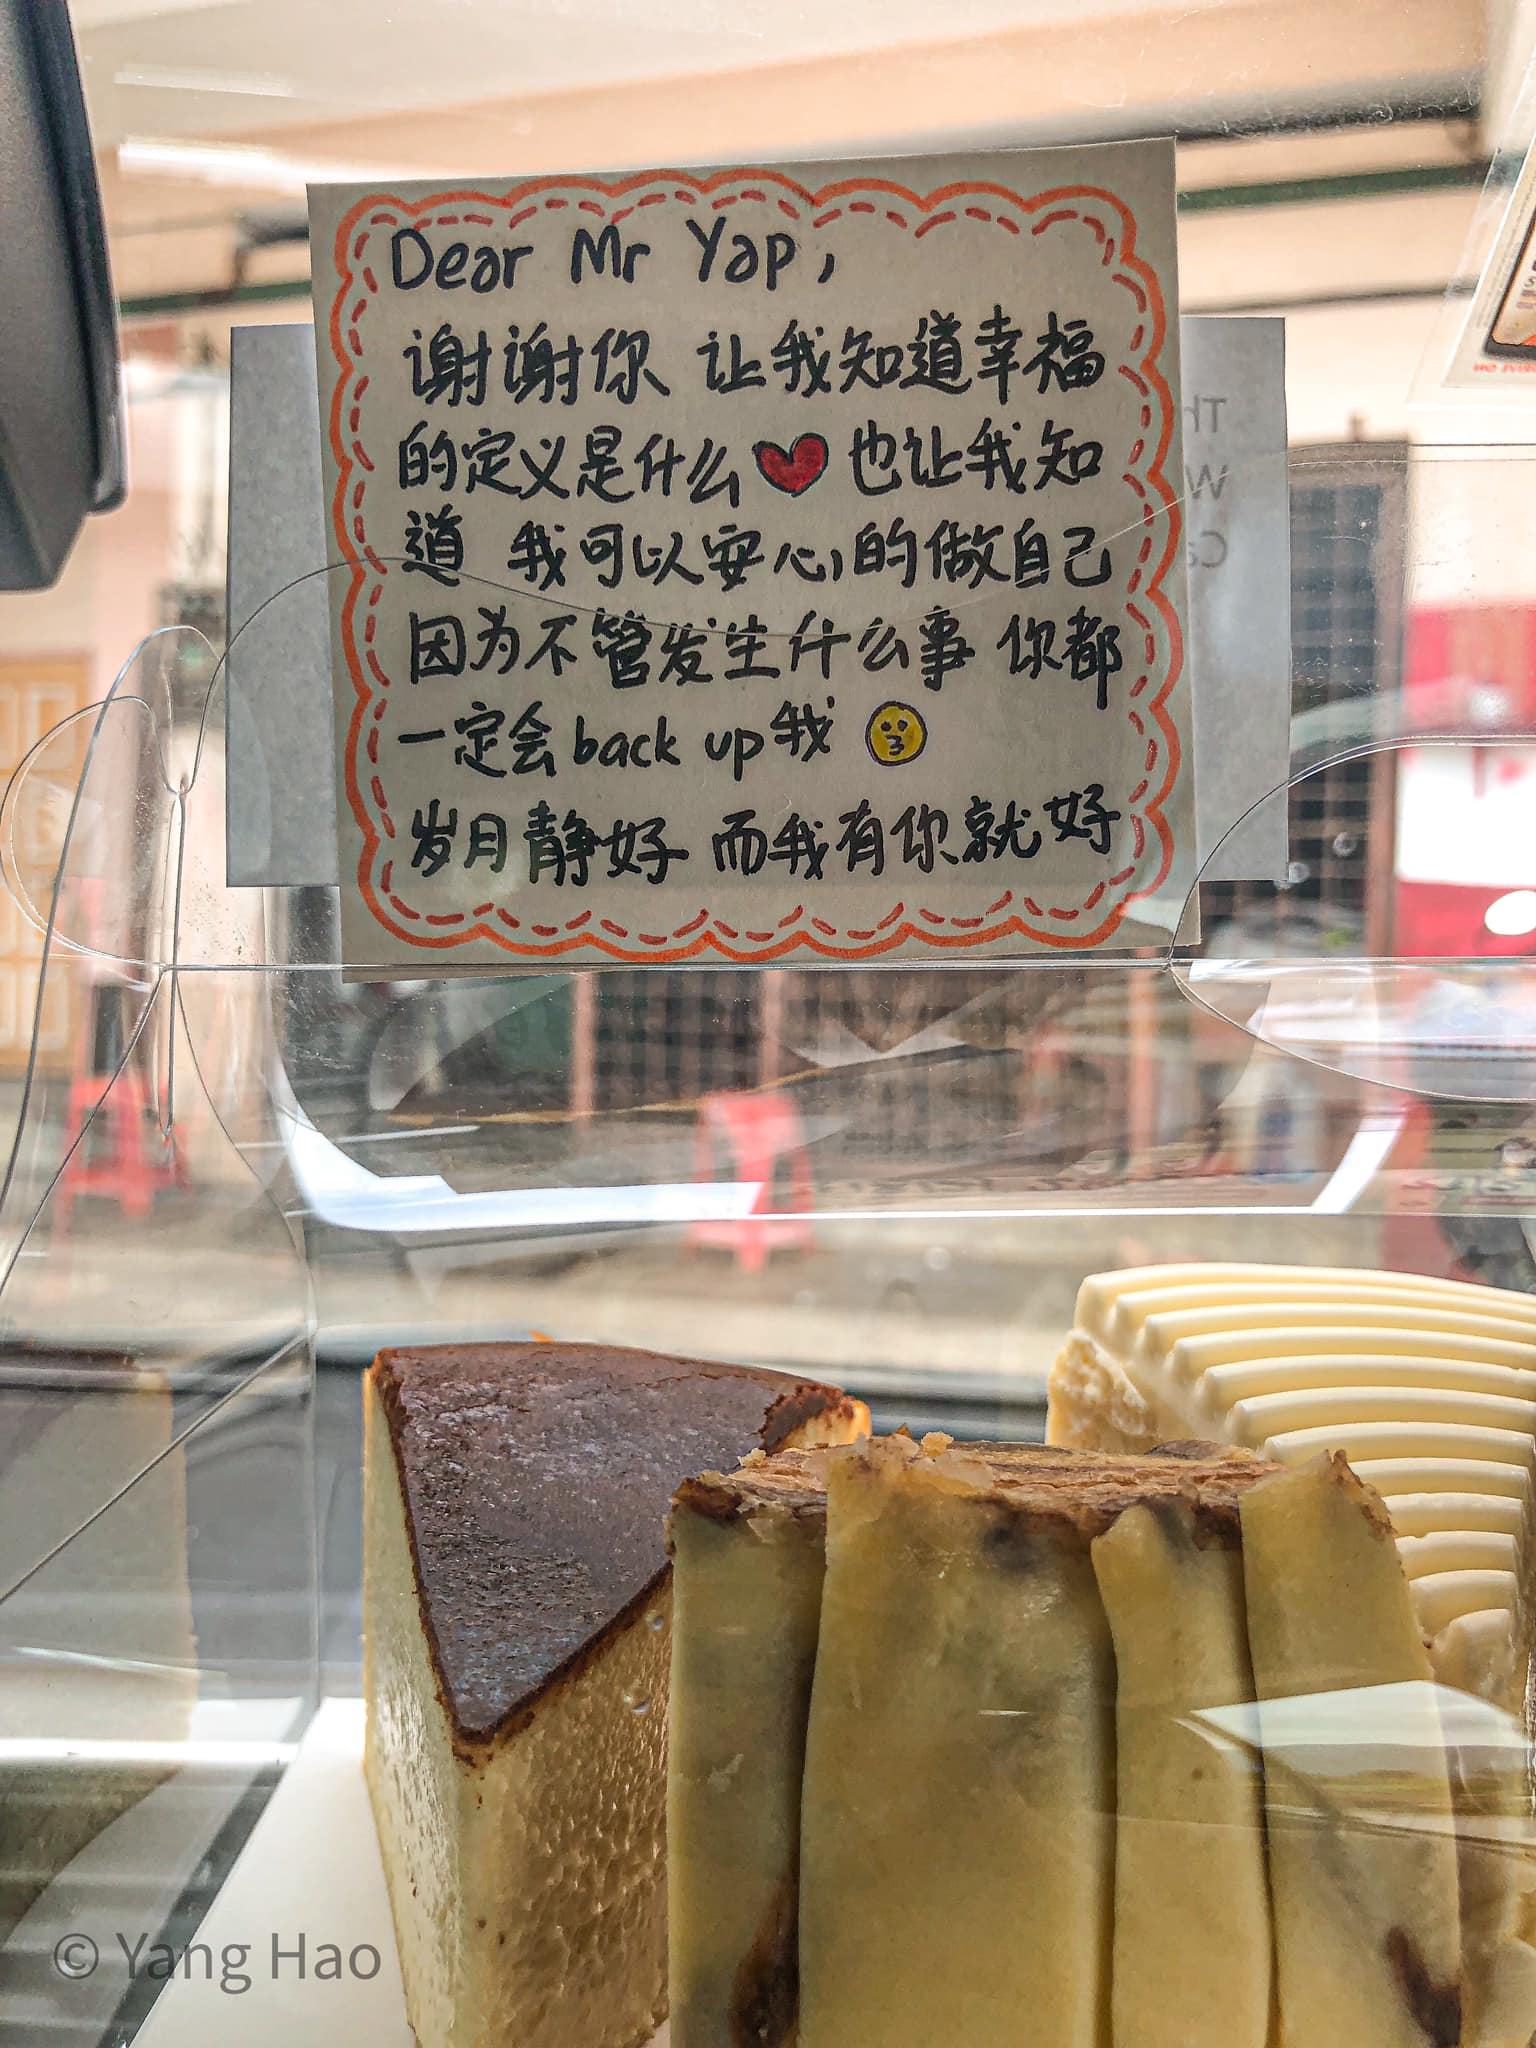 Dear Mr Yap,
谢谢你 让我知道幸福
的定义是什么❤也让我知
道 我可以安心的做自己
因为不管发生什么事 你都
一定会 back up 我 😗
岁月静好 而我有你就好
© Yang Hao